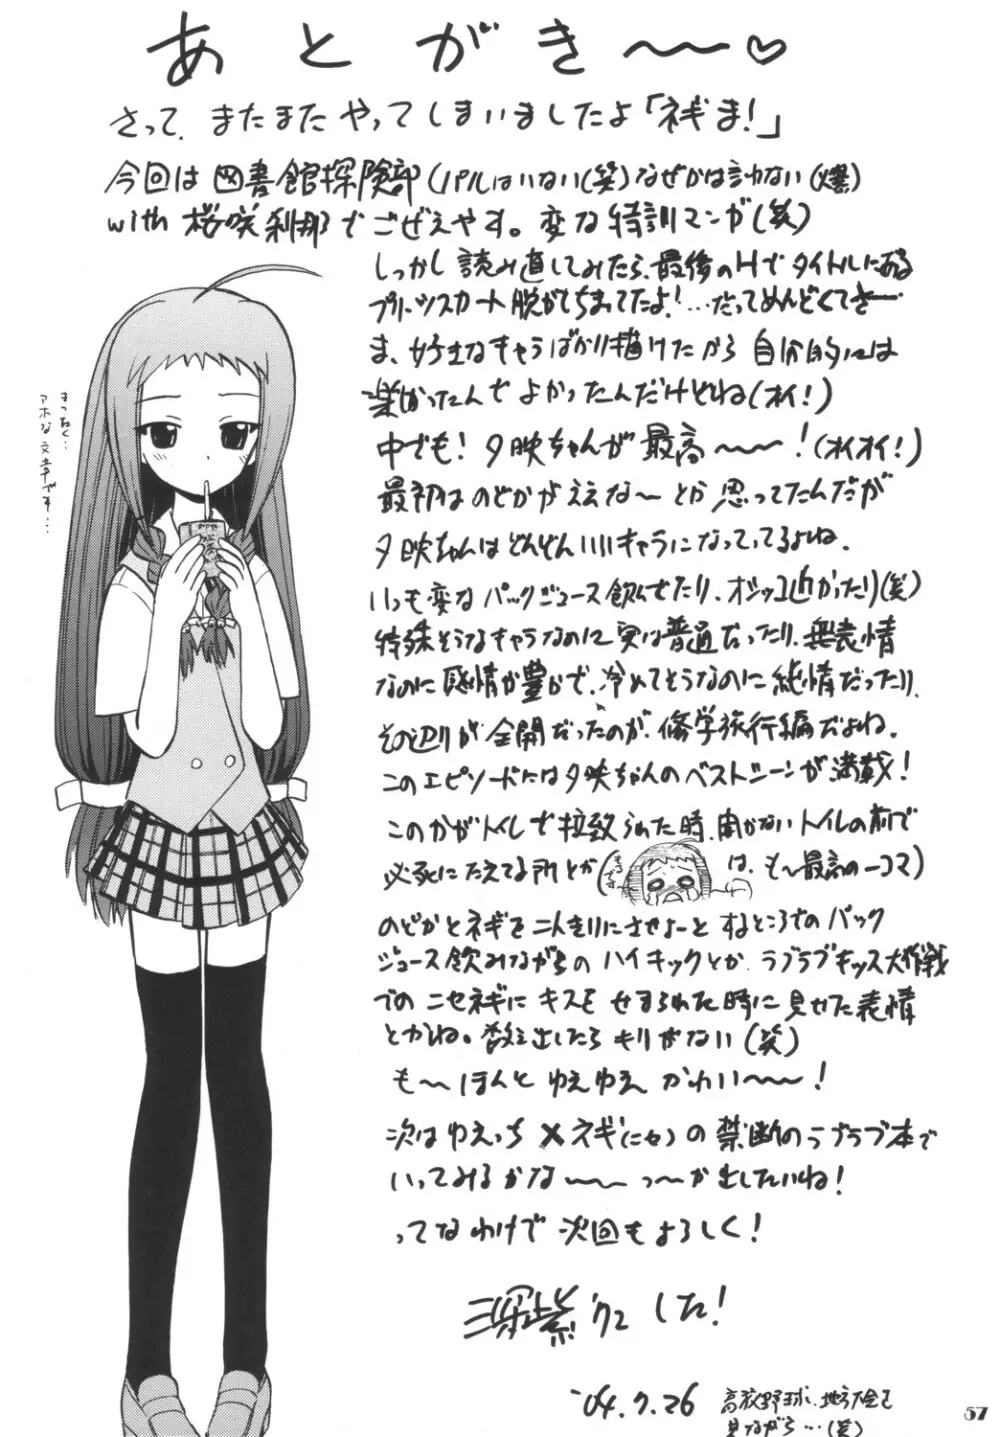 あとがき～～♡
さって、またまたやってしまいましたよ「ネギま!」
今回は図書館探険部(パルはいない(笑)なぜかは訊かない(爆)
with 桜咲刹那でごぜえやす。変な特訓マンガ(笑)
しっかし読み直してみたら、最後のHでタイトルにある
プリーツスカート脱がせちまってたよ!…だってめんどくてさー
ま、好きなキャラばかり描けたから自分的には
楽しかったんでよかったんだけどね(オイ!)
中でも!夕映ちゃんが最高～～～!(オイオイ!)
最初はのどかがええな～とか思ってたんだが
夕映ちゃんはどんどんいいキャラになっていてるよね。
いつも変なパックジュース飲んでたり、オシッコ近かったり(笑)
特殊そうなキャラなのに実は普通だったり、無表情
なのに感情が豊かで、冷めてそうなのに純情だったり、
その辺りが全開だったのが、修学旅行編だよね。
このエピソードには夕映ちゃんのベストシーンが満載!
このかがトイレで拉致られた時、開かないトイレの前で
必死にたえてる所とか(は、も～最高の一コマ)
のどかとネギを二人きりにさせよーとするところでのパック
ジュース飲みながらのハイキックとか、ラブラブキッス大作戦
でのニセネギにキスをせまられた時に見せた表情
とかね。数え出したらキリがない(笑)
も～ほんとゆえゆえかわい～～～!
次はゆえっち×ネギ(ニセ)の禁断のラブラブ本で
いってみるかな～～～っ～か出したいね!
ってなわけで次回もよろしく!
深紫でした!
'04.7.26
高校野球、地方大会を
見ながら…(笑)
まったく…
アホな文章です…
57